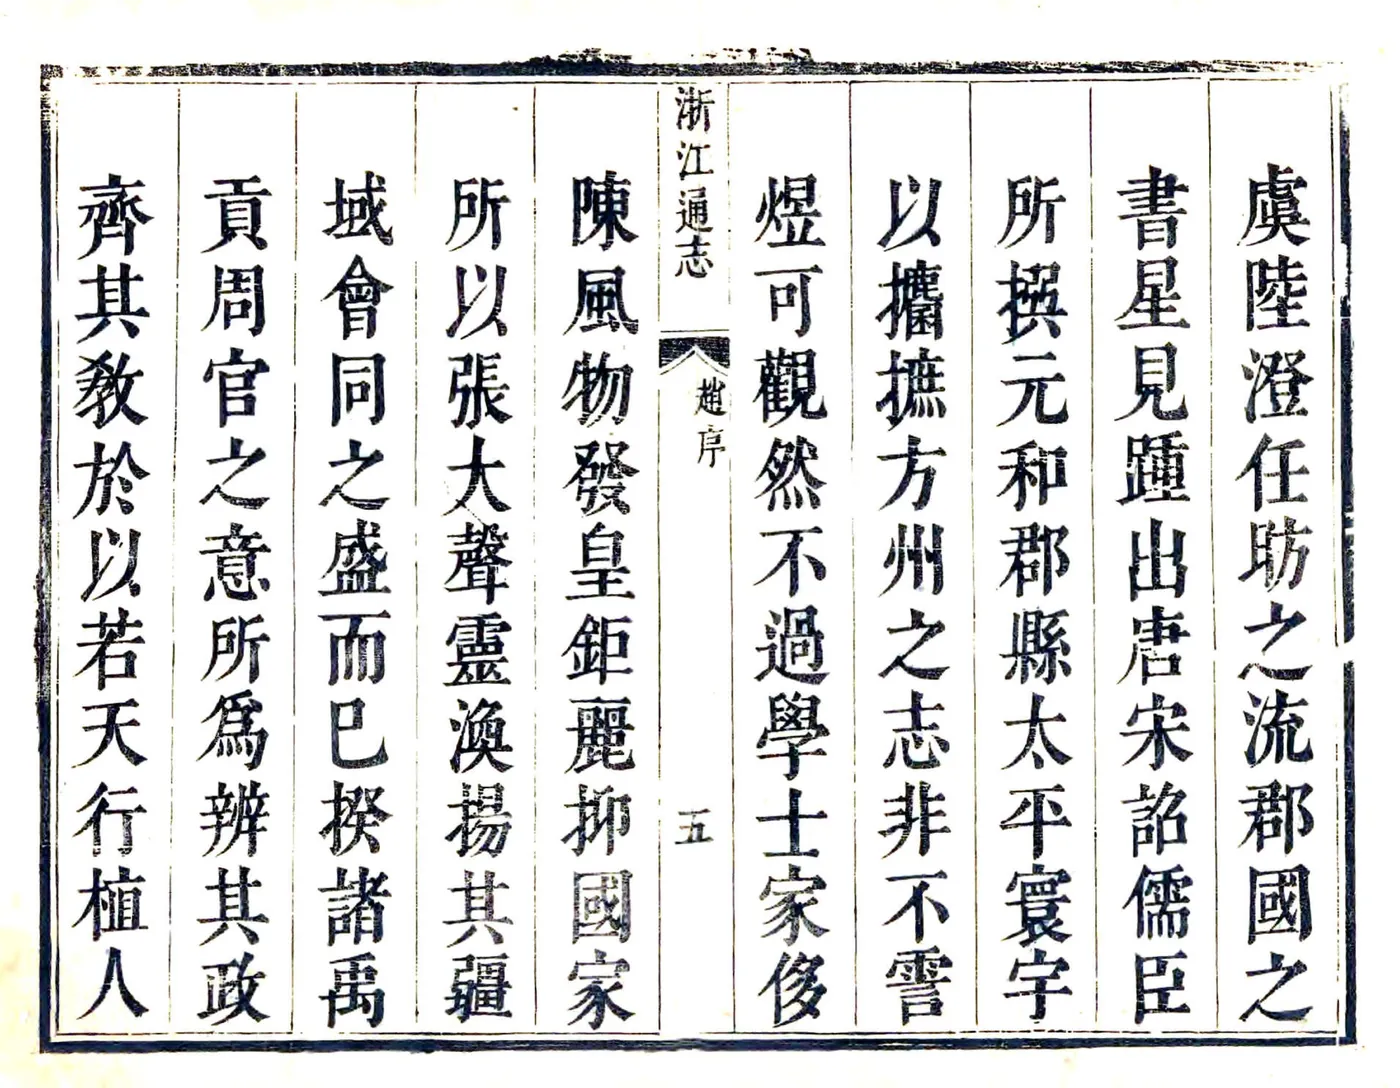 虞陸澄任昉之流郡國之
書星見踵出唐宋詔儒臣
所撰元和郡縣太平寰宇
以攟摭方州之志非不霅
煜可觀然不過學士家侈
浙江通志
趙序
五
陳風物發皇鉅麗抑國家
所以張大聲靈渙揚其疆
域會同之盛而已揆諸禹
貢周官之意所爲辨其政
齊其敎於以若天行植人